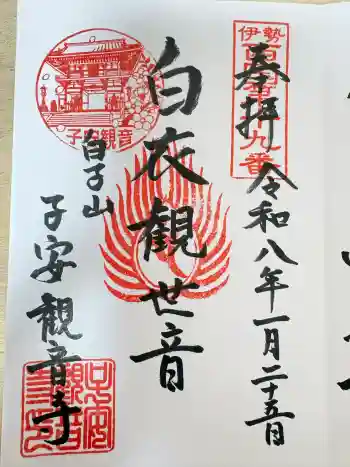 奉拝
令和八年一月二十五日
白衣観世音
白子山
子安観音寺
伊勢
子安観音